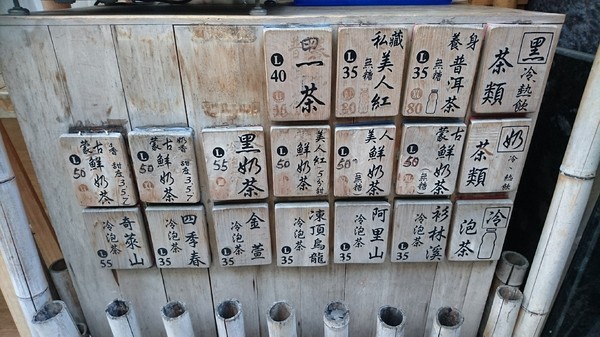 黑 冷熱飲
茶類
養身
普洱茶
L
35
無糖
80
私藏
美人紅
L
35
無糖
80
黑茶
L
40
奶
冷
熱飲
茶類
蒙古
鮮奶茶
L
50
無糖
美人
鮮奶茶
L
50
無糖
美人紅
鮮奶茶
L
50
5分甜
黑奶茶
L
55
奶香
蒙古
鮮奶茶
甜度357
L
50
蒙古
鮮奶茶
甜度357
L
50
冷
泡茶
杉林溪
冷泡茶
L
35
阿里山
冷泡茶
L
35
凍頂烏龍
冷泡茶
L
35
金萱
冷泡茶
L
35
四季春
冷泡茶
L
35
奇萊山
冷泡茶
L
55